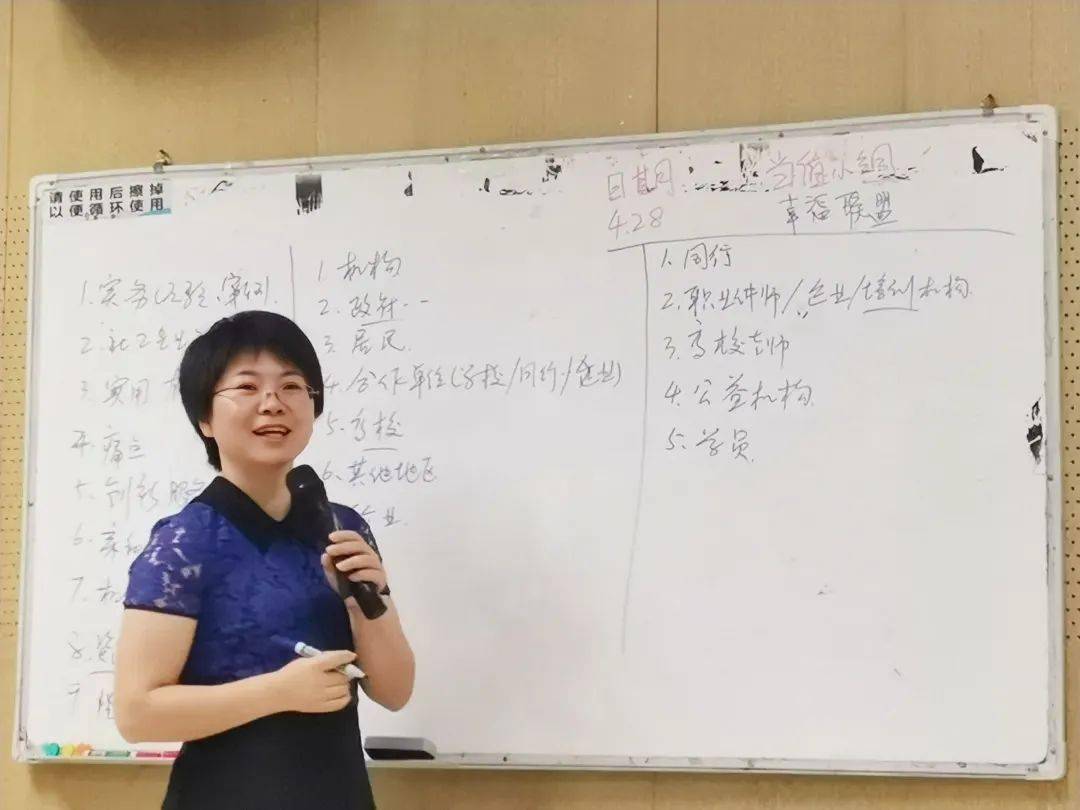 请使用后擦掉
以便循环使用
日期
当值小组
4.28
幸福联盟
1.实务(经验、案例)
2.社工
3.实用
4.痛点
5.创新
6.亲和
7.机
8.
9
1.机构
2.政府
3.居民
4.合作单位(学校/同行/企业)
5.高校
6.其他地区
业
1.同行
2.职业律师/企业/培训机构
3.高校老师
4.公益机构
5.学员